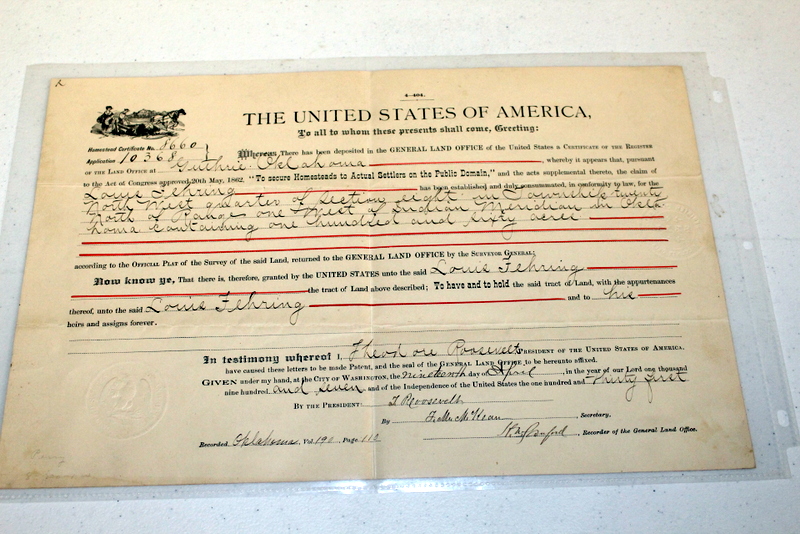 4-404.
THE UNITED STATES OF AMERICA,
To all to whom these presents shall come, Greeting:
Homestead Certificate No. 8660
Application 10368
Whereas There has been deposited in the GENERAL LAND OFFICE of the United States a CERTIFICATE OF THE REGISTER
OF THE LAND OFFICE at Guthrie, Oklahoma, whereby it appears that, pursuant
to the Act of Congress approved 20th May, 1862, "To secure Homesteads to Actual Settlers on the Public Domain," and the acts supplemental thereto, the claim of
Louis Fehring has been established and duly consummated, in conformity to law, for the
North West quarter of Section eight in Township twenty
North of Range one West of Indian Meridian in Okla
homa containing one hundred and sixty acres
according to the OFFICIAL PLAT of the Survey of the said Land, returned to the GENERAL LAND OFFICE by the SURVEYOR GENERAL:
Now know ye, That there is, therefore, granted by the UNITED STATES unto the said Louis Fehring
the tract of Land above described; To have and to hold the said tract of Land, with the appurtenances
thereof, unto the said Louis Fehring and to his
heirs and assigns forever.
In testimony whereof I, Theodore Roosevelt, PRESIDENT OF THE UNITED STATES OF AMERICA,
have caused these letters to be made Patent, and the seal of the GENERAL LAND OFFICE to be hereunto affixed.
GIVEN under my hand, at the CITY OF WASHINGTON, the nineteenth day of April, in the year of our Lord one thousand
nine hundred and seven, and of the Independence of the United States the one hundred and thirty first
BY THE PRESIDENT: T. Roosevelt
By F. M. McKean, Secretary,
Recorded Oklahoma, Vol. 190, Page 112
, Recorder of the General Land Office.